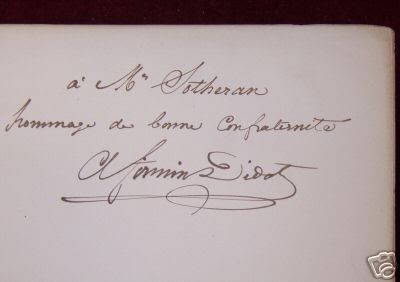 à Mr Sotheran
hommage de bonne confraternité
A Firmin Didot
ebY